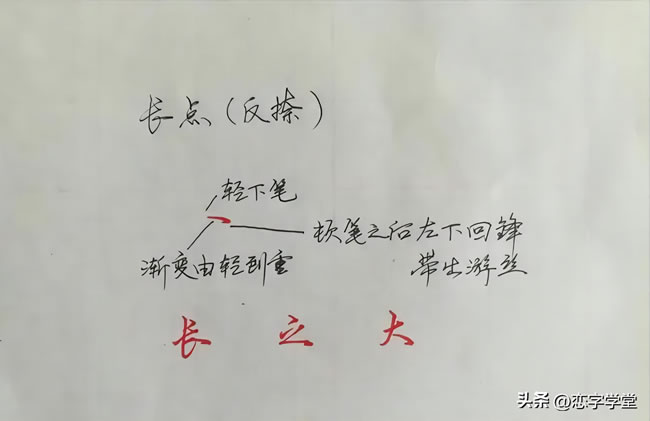 长点(反捺)
轻下笔
顿笔之后左下回鋒
渐变由轻到重
带出游丝
长 之 大
头条 @恋字学堂